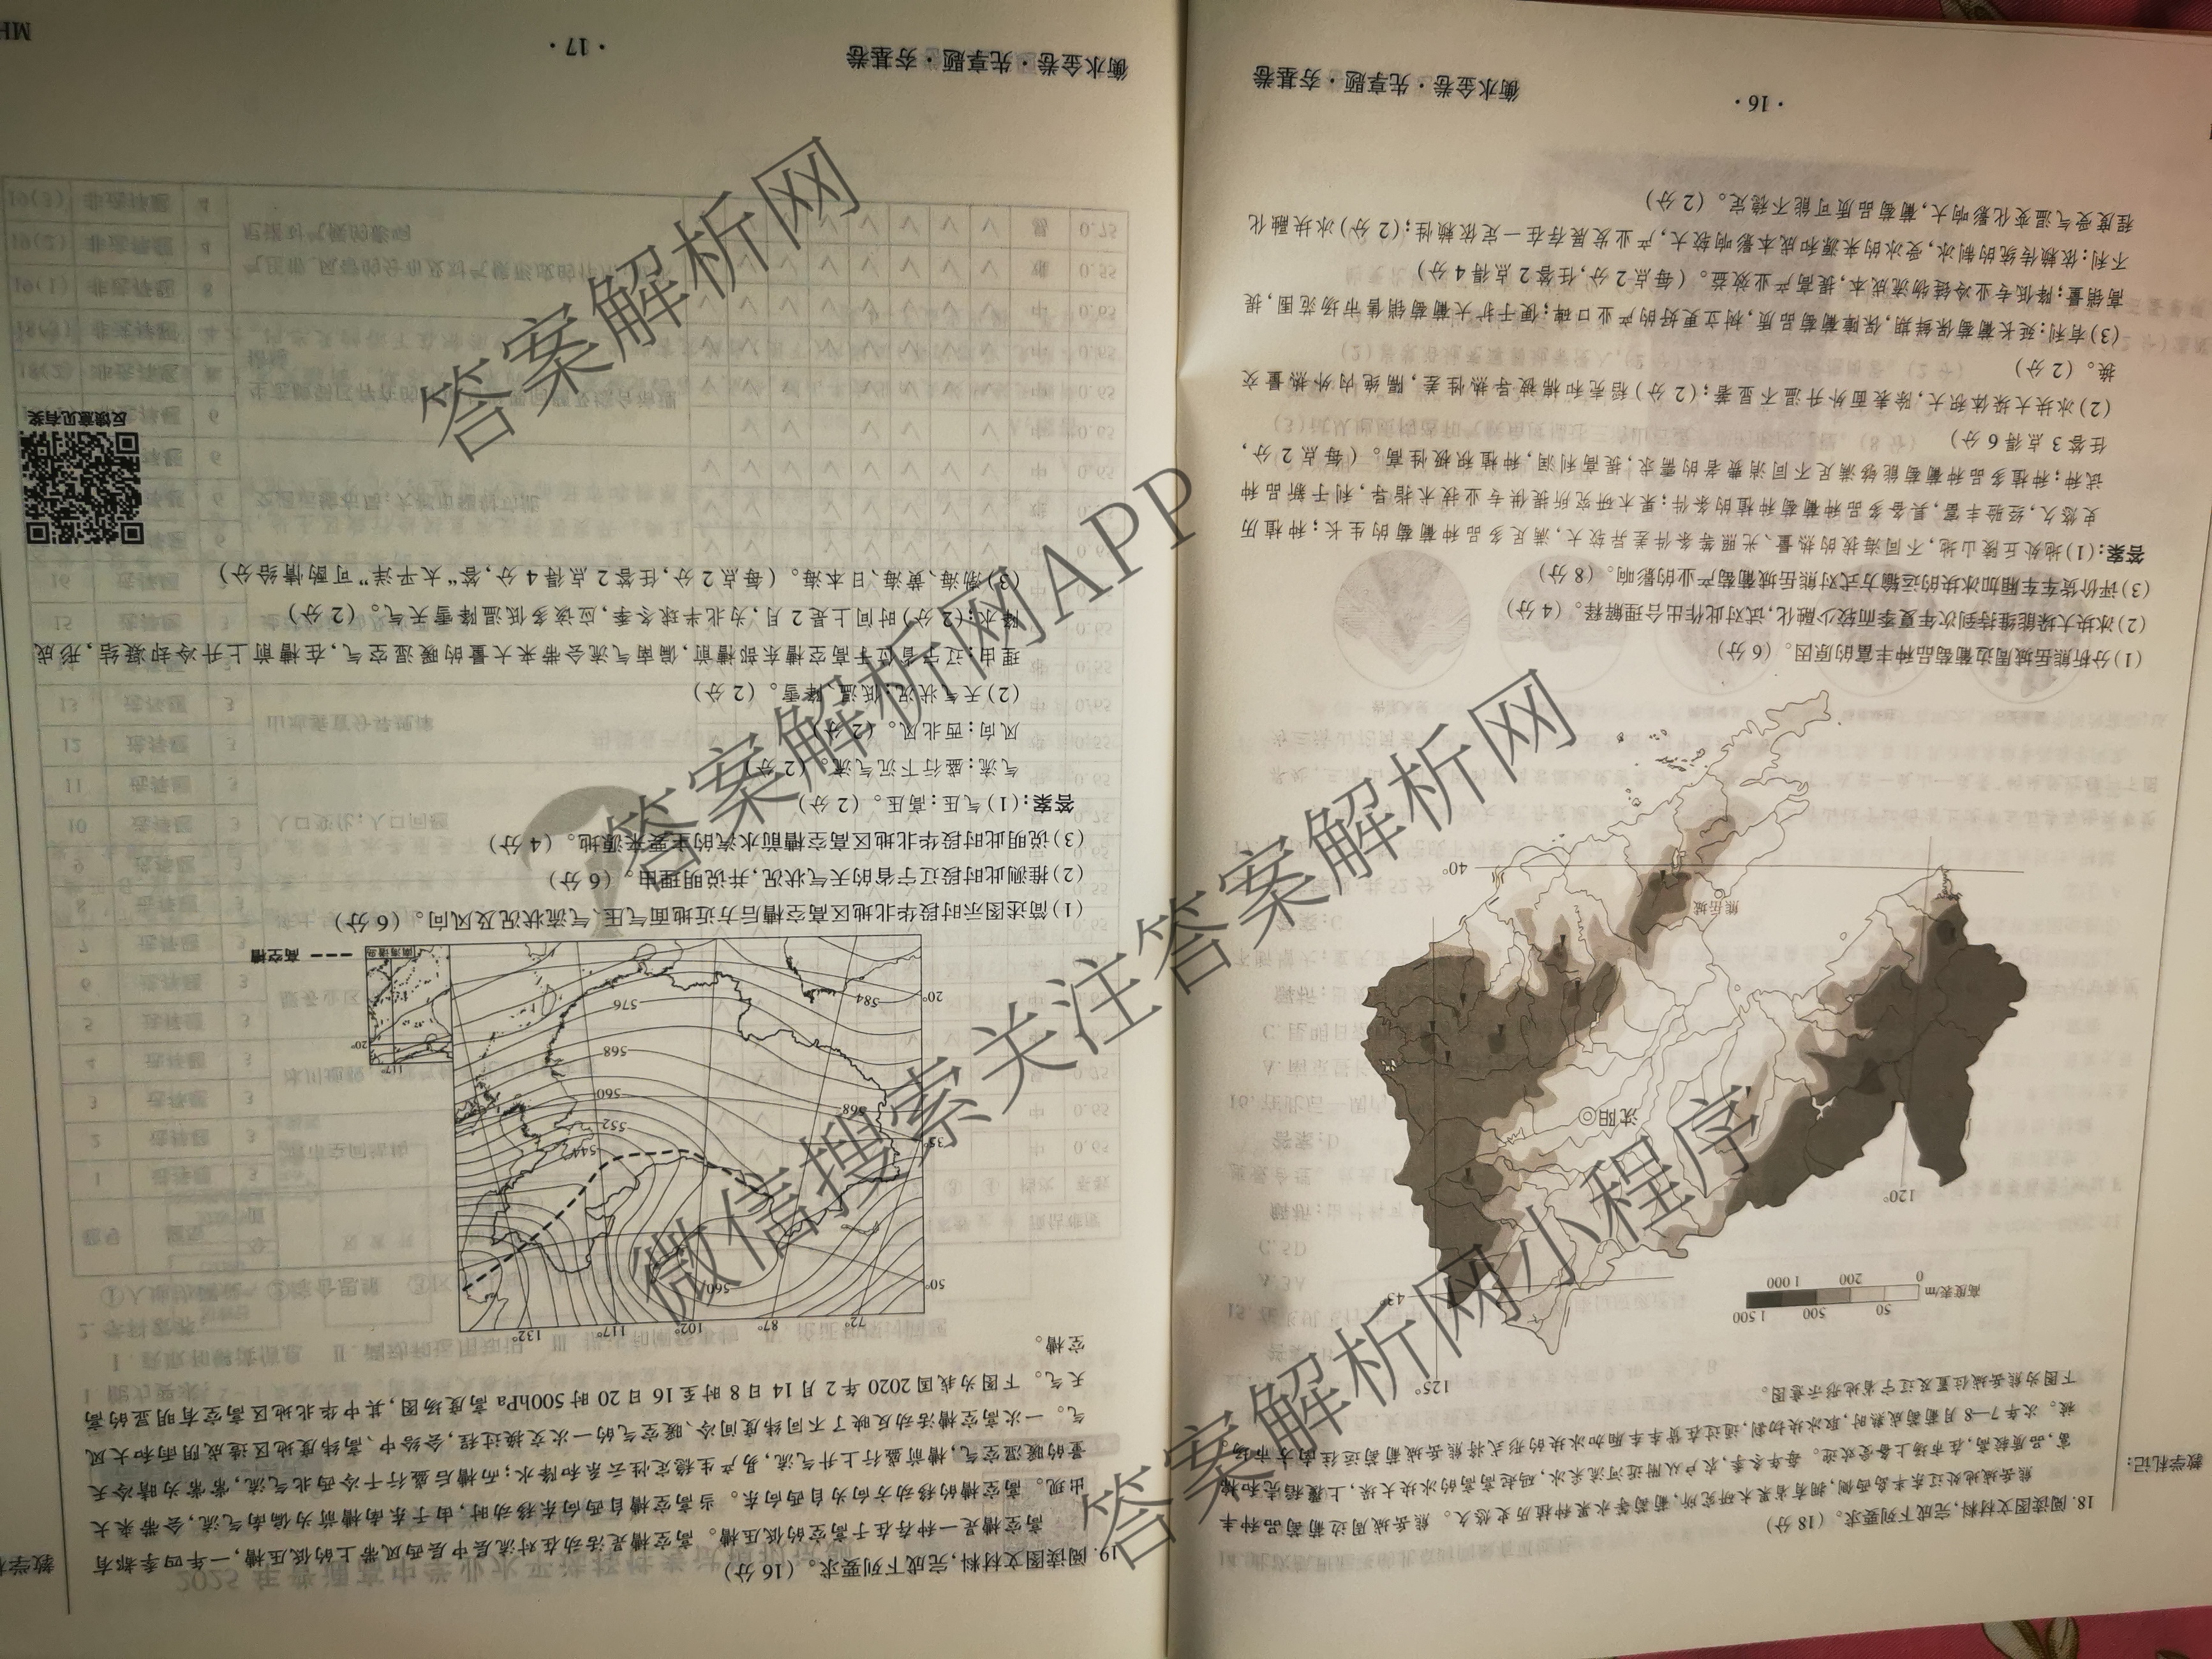 18. 阅读图文材料,完成下列要求。(18分)
熊岳城地处辽东半岛西侧,拥有省果木研究所,葡萄等水果种植历史悠久。熊岳城周边葡萄品种丰
富,品质较高,在市场上备受欢迎。每年冬季,农户从附近河流采冰,码起高高的冰块大垛,上覆稻壳和棉
被。次年7—8月葡萄成熟时,取冰块切割,通过在货车车厢加冰块的形式将熊岳城葡萄运往南方市场。
下图为熊岳城位置及辽宁省地形示意图。
教学札记:
125°
高度表/m
0
50
200
500
1 000
1 500
43°
120°
沈阳
熊岳城
40°
(1)分析熊岳城周边葡萄品种丰富的原因。(6分)
(2)冰块大垛能维持到次年夏季而较少融化,试对此作出合理解释。(4分)
(3)评价货车车厢加冰块的运输方式对熊岳城葡萄产业的影响。(8分)
答案:(1)地处丘陵山地,不同海拔的热量、光照等条件差异较大,满足多品种葡萄的生长;种植历
史悠久,经验丰富,具备多品种葡萄种植的条件;果木研究所提供专业技术指导,利于新品种
试种;种植多品种葡萄能够满足不同消费者的需求,提高利润,种植积极性高。(每点2分,
任答3点得6分)
(2)冰块大垛体积大,除表面外升温不显著;(2分)稻壳和棉被导热性差,隔绝内外热量交
换。(2分)
(3)有利:延长葡萄保鲜期,保障葡萄品质,树立更好的产业口碑;便于扩大葡萄销售市场范围,提
高销量;降低专业冷链物流成本,提高产业效益。(每点2分,任答2点得4分)
不利:依赖传统的制冰,受冰的来源和成本影响较大,产业发展存在一定依赖性;(2分)冰块融化
程度受气温变化影响大,葡萄品质可能不稳定。(2分)
· 16 ·
衡水金卷·先享题·夯基卷
19. 阅读图文材料,完成下列要求。(16分)
高空槽是一种存在于高空的低压槽。高空槽是活动在对流层中层西风带上的低压槽,一年四季都有
出现。高空槽的移动方向为自西向东。当高空槽自西向东移动时,由于东南槽前为偏南气流,会带来大
量的暖湿空气,槽前盛行上升气流,易产生稳定性云系和降水;而槽后盛行干冷西北气流,常常为晴冷天
气。一次高空槽活动反映了不同纬度间冷、暖空气的一次交换过程,会给中、高纬度地区造成阴雨和大风
天气。下图为我国2020年2月14日8时至16日20时500hPa高度场图,其中华北地区高空有明显的高
空槽。
72°
87°
102°
117°
132°
50°
560
35°
544
552
568
560
568
576
584
20°
117°
20°
南海诸岛
高空槽
(1)简述图示时段华北地区高空槽后方近地面气压、气流状况及风向。(6分)
(2)推测此时段辽宁省的天气状况,并说明理由。(6分)
(3)说明此时段华北地区高空槽前水汽的主要来源地。(4分)
答案:(1)气压:高压。(2分)
气流:盛行下沉气流。(2分)
风向:西北风。(2分)
(2)天气状况:低温、降雪。(2分)
理由:辽宁省位于高空槽东部槽前,偏南气流会带来大量的暖湿空气,在槽前上升冷却凝结,形成
降水;(2分)时间上是2月,为北半球冬季,应该多低温降雪天气。(2分)
(3)渤海、黄海、日本海。(每点2分,任答2点得4分,答“太平洋”可酌情给分)
反馈意见有奖
衡水金卷·先享题·夯基卷
· 17 ·
答案解析网
答案解析网APP
微信搜索关注答案解析网
答案解析网小程序